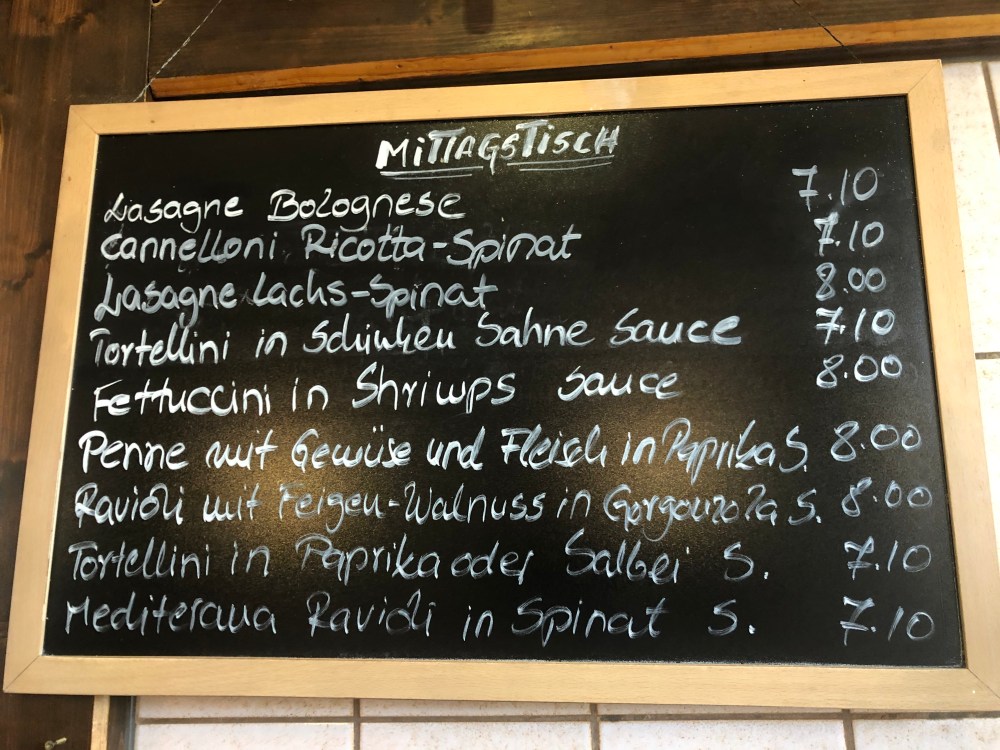 MiTTAGSTiSCH
Lasagne Bolognese 7.10
Cannelloni Ricotta-Spinat 7.10
Lasagne Lachs-Spinat 8.00
Tortellini in Schinken Sahne Sauce 7.10
Fettuccini in Shrimps Sauce 8.00
Penne mit Gemüse und Fleisch in Paprika S. 8.00
Ravioli mit Feigen-Walnuss in Gorgonzola S. 8.00
Tortellini in Paprika oder Salbei S. 7.10
Mediterana Ravioli in Spinat S. 7.10